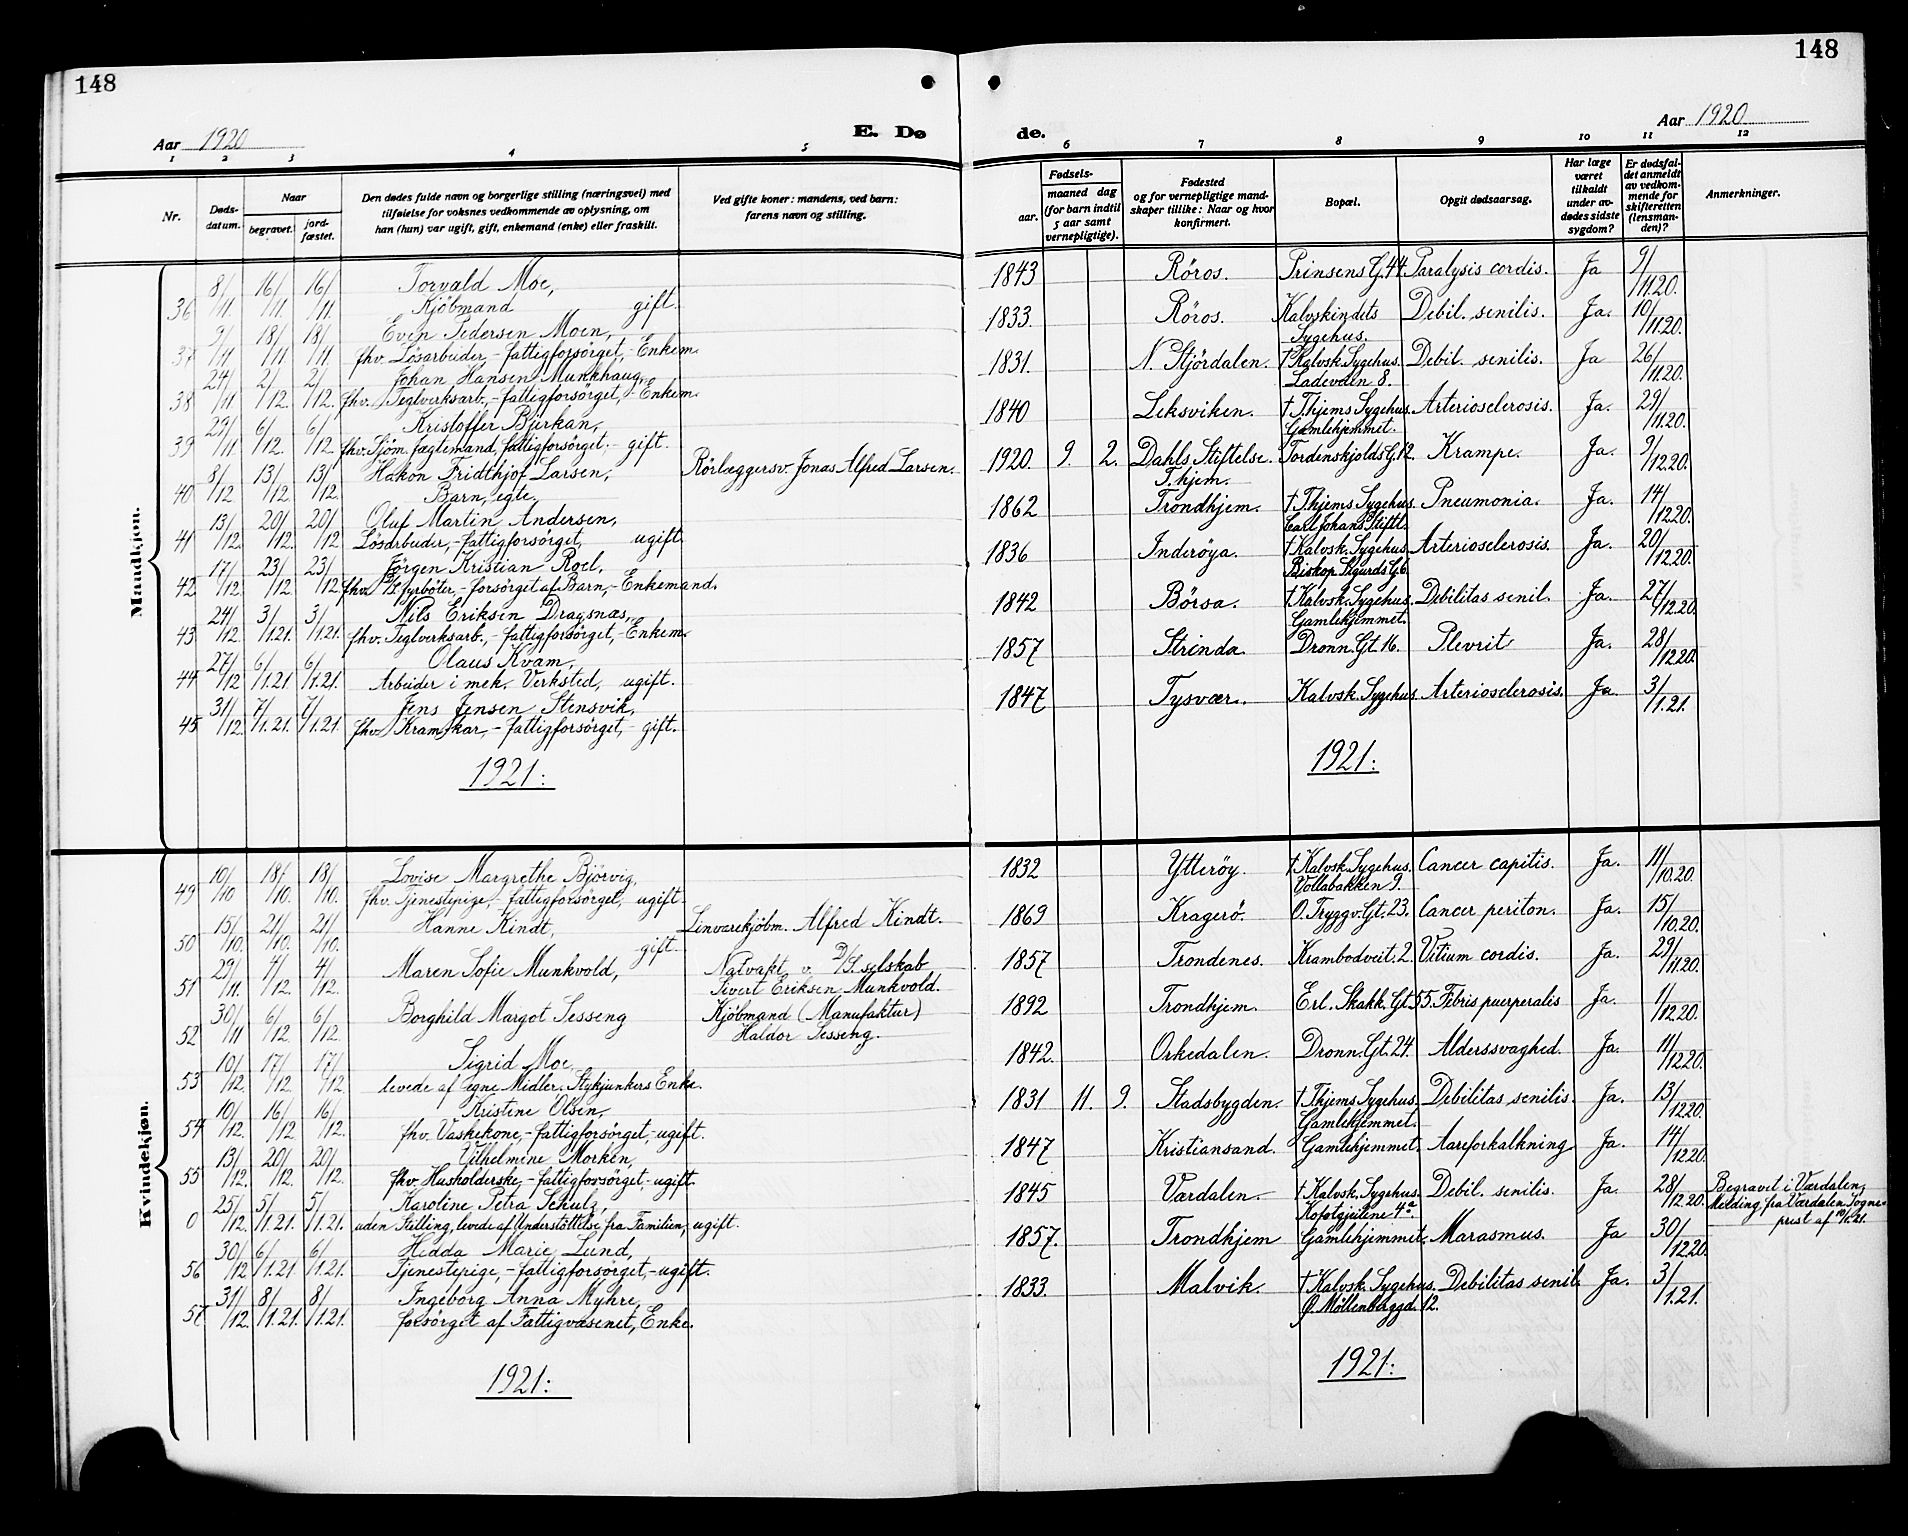 148
148
Aar 1920
E. Dø
de.
Aar 1920
1 2 3 4 5
6 7 8 9 10 11 12
Nr.
Døds-
datum.
Naar
begravet.
jord-
fæstet.
Den dødes fulde navn og borgerlige stilling (næringsvei) med
tilføielse for voksnes vedkommende av oplysning, om
han (hun) var ugift, gift, enkemand (enke) eller fraskilt.
Ved gifte koner: mandens, ved barn:
farens navn og stilling.
Fødsels-
aar.
maaned dag
(for barn indtil
5 aar samt
vernepligtige).
Fødested
og for vernepligtige mand-
skaper tillike: Naar og hvor
konfirmert.
Bopæl.
Opgit dødsaarsag.
Har læge
været
tilkaldt
under av-
dødes sidste
sygdom?
Er dødsfal-
det anmeldt
av vedkom-
mende for
skifteretten
(lensman-
den)?
Anmerkninger.
Mandkjøn.
36 8/11 16/11 16/11 Torvald Moe,
Kjöbmand gift.
1843 Röros. Prinsens G. 44. Paralysis cordis. Ja 9/11.20.
37 9/11 18/11 18/11 Even Pedersen Moen,
fhv. Lösarbeider, - fattigforsörget, - Enkem.
1833. Röros. Kalvskindets
Sygehus.
Debil. senilis. Ja. 10/11.20.
38 24/11 2/12. 2/12. Johan Hansen Munkhaug,
fhv. Teglverksarb., - fattigforsörget, - Enkem.
1831. N. Stjördalen. † Kalvsk. Sygehus.
Ladeveien 8.
Debil. senilis. Ja 26/11.20.
39 29/11 6/12. 6/12. Kristoffer Bjerkan,
fhv. Sjöm. jægtemand, fattigforsörget, - gift.
1840 Leksviken. † T.hjems Sygehus.
Gamlehjemmet.
Arteriosclerosis. Ja. 29/11.20.
40 8/12 13/12. 13/12. Håkon Fridthjof Larsen,
Barn, egte,
Rörlæggersv. Jonas Alfred Larsen.
1920. 9. 2. Dahls Stiftelse.
T.hjem.
Tordenskjolds G. 12. Krampe. Ja. 9/12.20.
41 13/12. 20/12. 20/12 Oluf Martin Andersen,
Lösarbeider, - fattigforsörget, ugift.
1862 Trondhjem. † T.hjems Sygehus.
Carl Johans Stiftl.
Pneumonia. Ja. 14/12.20.
42 17/12. 23/12. 23/12 Jörgen Kristian Roel,
fhv. D/S fyrböter, - forsörget af Barn, - Enkemand.
1836 Inderöya. † Kalvsk. Sygehus.
Biskop Sigurds G. 6.
Arteriosclerosis. Ja. 20/12.20.
43 24/12. 3/1.21. 3/1.21. Nils Eriksen Dragsnas,
fhv. Teglverksarb., - fattigforsörget, Enkem.
1842 Börsa. † Kalvsk. Sygehus.
Gamlehjemmet.
Debilitas senil. Ja. 27/12.20.
44 27/12 6/1.21. 6/1.21. Olaus Kvam,
Arbeider i mek. Verksted, ugift.
1857 Strinda. Dronn. Gt. 16. Plevrit Ja. 28/12.20.
45 31/12. 7/1.21. 7/1.21. Jens Jensen Stensvik,
fhv. Kramskar, - fattigforsörget, - gift.
1847 Tysvær. Kalvsk. Sygehus. Arteriosclerosis. Ja. 3/1.21.
1921:
1921:
Kvindekjøn.
49 10/10 18/10. 18/10. Lovise Margrethe Björvig,
fhv. Tjenestepige, - fattigforsörget, ugift.
1832 Ytteröy. † Kalvsk. Sygehus.
Vollabakken 9.
Cancer capitis. Ja. 11/10.20.
50 15/10. 21/10. 21/10. Hanne Kindt,
gift.
Linvarekjöbm. Alfred Kindt.
1869 Kragerö. O. Tryggv. Gt. 23. Cancer periton. Ja. 15/10.20.
51 29/11. 4/12. 4/12. Maren Sofie Munkvold,
Natvakt v. D/S. selskab
Sivert Eriksen Munkvold.
1857 Trondenes. Krambodveit. 2. Vitium cordis. Ja. 29/11.20.
52 30/11 6/12. 6/12. Borghild Margot Sesseng
Kjöbmand (Manufaktur)
Haldor Sesseng.
1892 Trondhjem. Erl. Skakk. Gt. 55. Febris puerperalis Ja. 1/12.20.
53 10/12. 17/12. 17/12 Sigrid Moe,
levede af egne Midler. Stykjunkers Enke.
1842. Orkedalen. Dronn. Gt. 24. Alderssvaghed. Ja. 11/12.20.
54 10/12. 16/12. 16/12. Kristene Olsen,
fhv. Vaskekone, - fattigforsörget, - ugift.
1831 11. 9. Stadsbygden. † T.hjems Sygehus.
Gamlehjemmet.
Debilitas senilis. Ja. 13/12.20.
55 13/12. 20/12. 20/12. Vilhelmine Morken,
fhv. Husholderske, - fattigforsörget, - ugift.
1847 Kristiansand. Gamlehjemmet. Aareforkalkning Ja. 14/12.20.
0 25/12. 5/1.21. 5/1.21. Karoline Petra Schulz,
uden Stilling, levede af Understöttelse fra Familien, ugift.
1845 Værdalen † Kalvsk. Sygehus.
Kofotgjeitene 4a.
Debil. senilis. Ja. 28/12.20. Begravet i Værdalen,
Melding fra Værdalen Sogne-
prest af 10/1.21.
56 30/12 6/1.21 6/1.21. Hedda Marie Lund,
Tjenestepige, - fattigforsörget, - ugift.
1857. Trondhjem Gamlehjemmet. Marasmus. Ja 30/12.20.
57 31/12. 8/1.21. 8/1.21. Ingeborg Anna Myhre,
forsörget af Fattigvæsenet, Enke.
1833. Malvik. † Kalvsk. Sygehus.
Ø. Möllenberggd. 12.
Debilitas senil. Ja. 3/1.21.
1921:
1921: